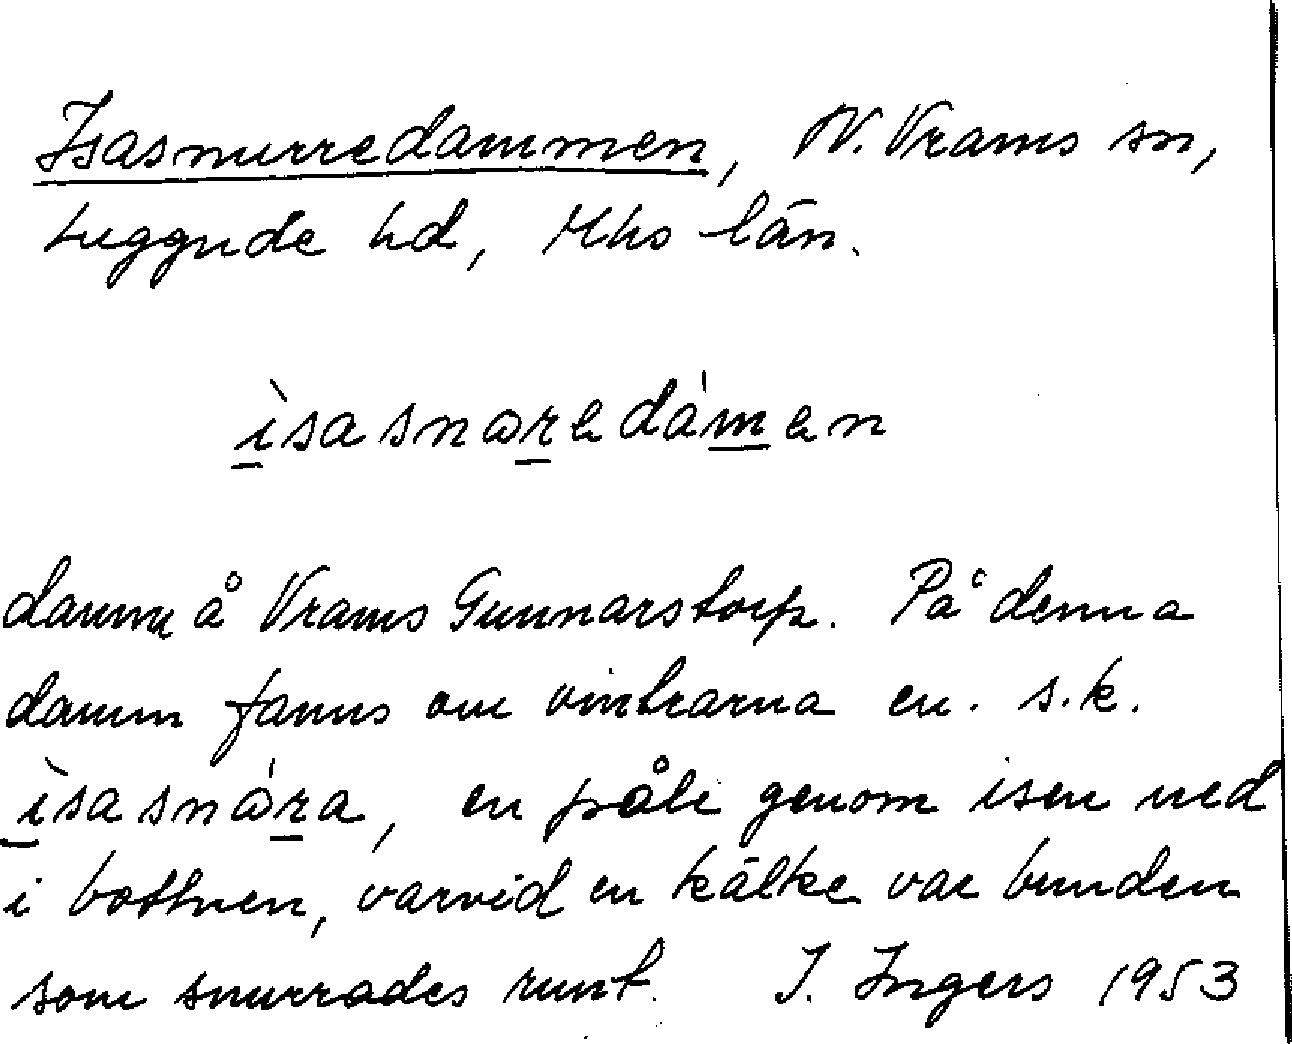 Isasnurredammen, N. Vrams sn,
Luggude hd, Mhs län.
ìsasnɷredámen
damm å Vrams Gunnarstorp. På denna
damm fanns om vintrarna en. s.k.
ìsasnɷ́ra, en påle genom isen ned
i bottnen, varvid en kälke var bunden
som snurrades runt. I. Ingers 1953